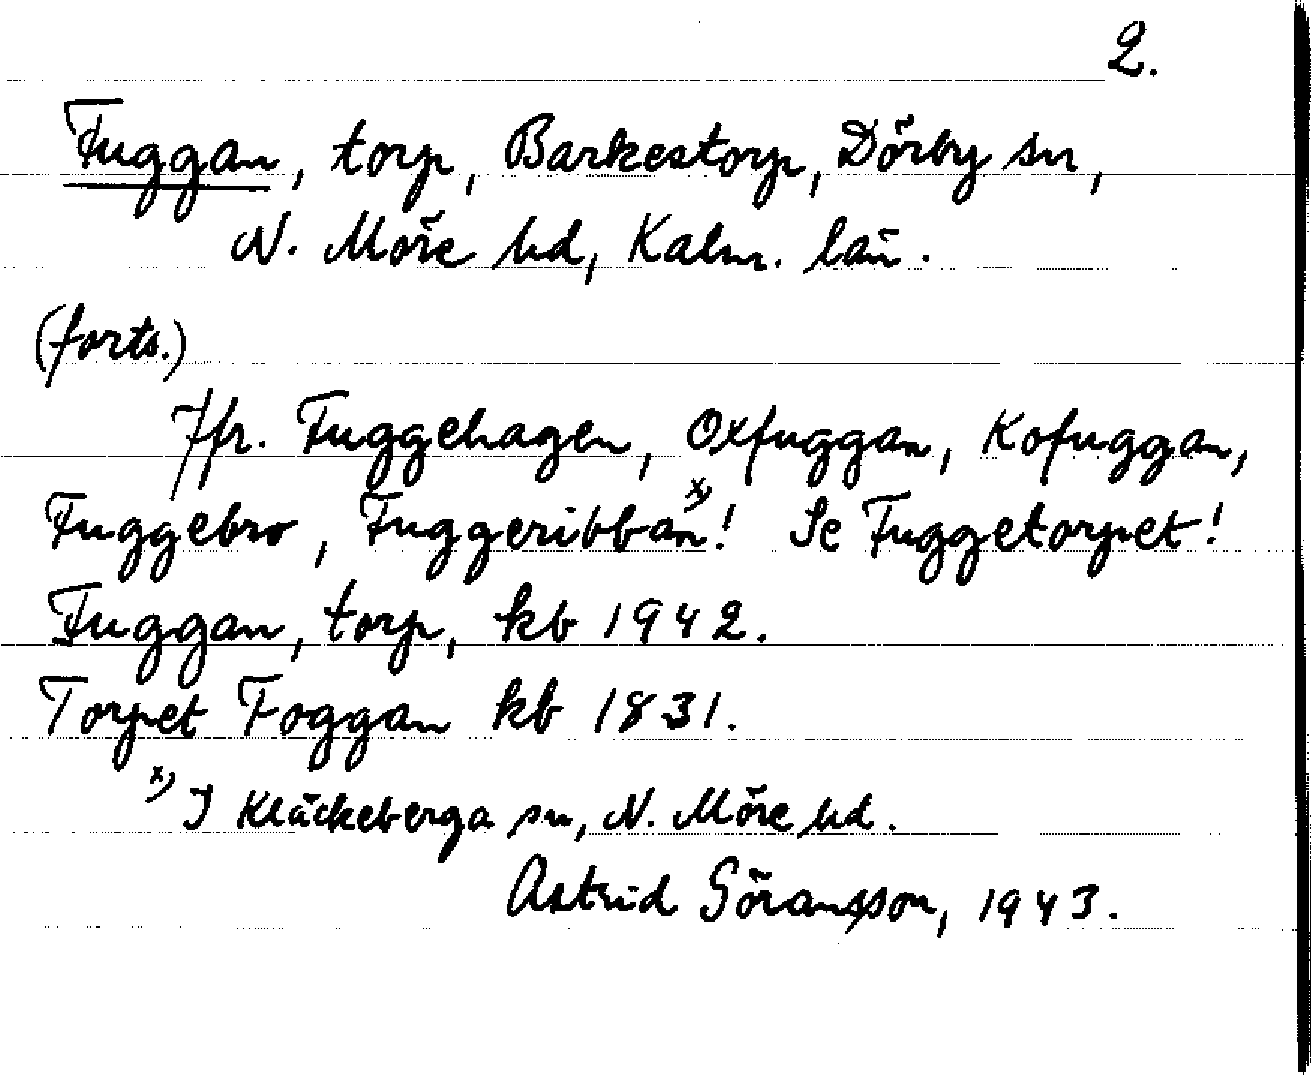 2.
Fuggan, torp, Barkestorp, Dörby sn,
N. Möre hd, Kalm. län.
(forts.)
Jfr. Fuggehagen, Oxfuggan, Kofuggan,
Fuggebro, Fuggeribban x)! Se Fuggetorpet!
Fuggan, torp, kb 1942.
Torpet Foggan kb 1831.
x) I Kläckeberga sn, N. Möre hd.
Astrid Göransson, 1943.